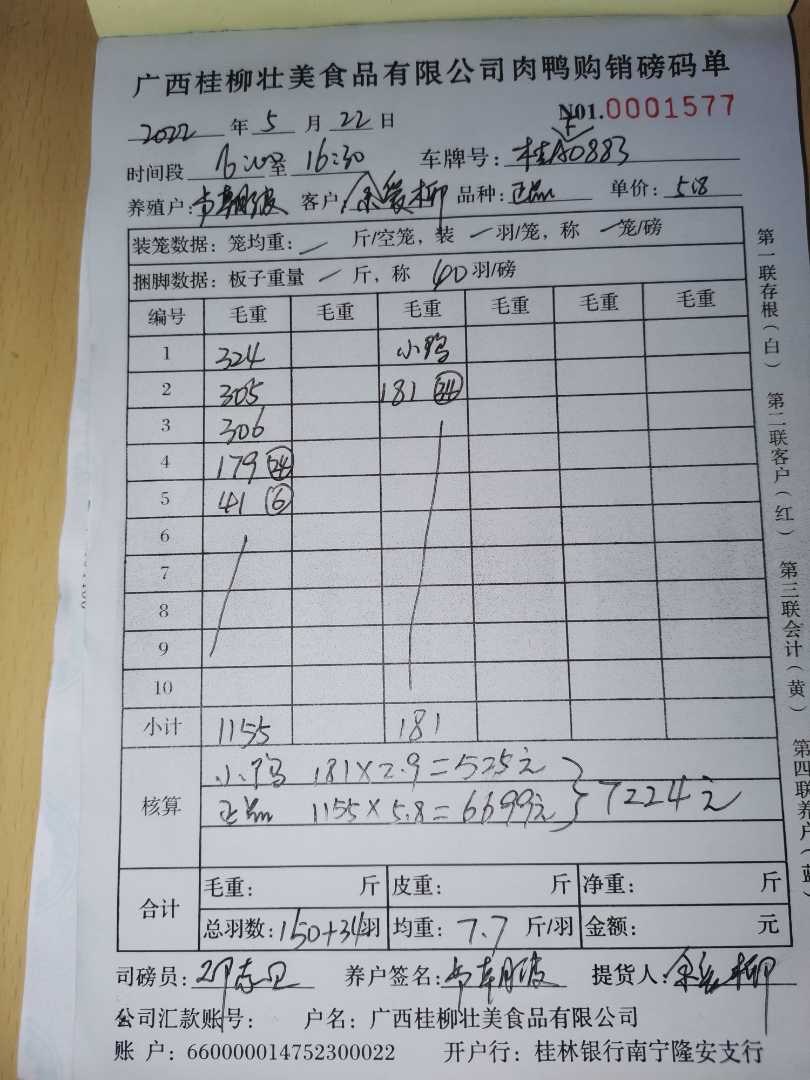 广西桂柳壮美食品有限公司肉鸭购销磅码单
2022 年 5 月 22 日 N01.0001577
时间段 至 16:30 车牌号: 桂A0883
养殖户: 客户: 余爱柳 品种: 正品 单价: 5.8
装笼数据: 笼均重: — 斤/空笼, 装 — 羽/笼, 称 — 笼/磅
捆脚数据: 板子重量 — 斤, 称 40 羽/磅
编号 毛重 毛重 毛重 毛重 毛重 毛重
1 324 小鸭
2 305 181 34
3 306
4 179 24
5 41 6
6
7
8
9
10
小计 1155 181
核算 小鸭 181×2.9=525元
正品 1155×5.8=6699元 } 7224元
合计 毛重: 斤 皮重: 斤 净重: 斤
总羽数: 150+34羽 均重: 7.7 斤/羽 金额: 元
司磅员: 养户签名: 提货人: 余爱柳
公司汇款账号: 户名: 广西桂柳壮美食品有限公司
账 户: 660000014752300022 开户行: 桂林银行南宁隆安支行
第一联存根(白) 第二联客户(红) 第三联会计(黄) 第四联养户(蓝)